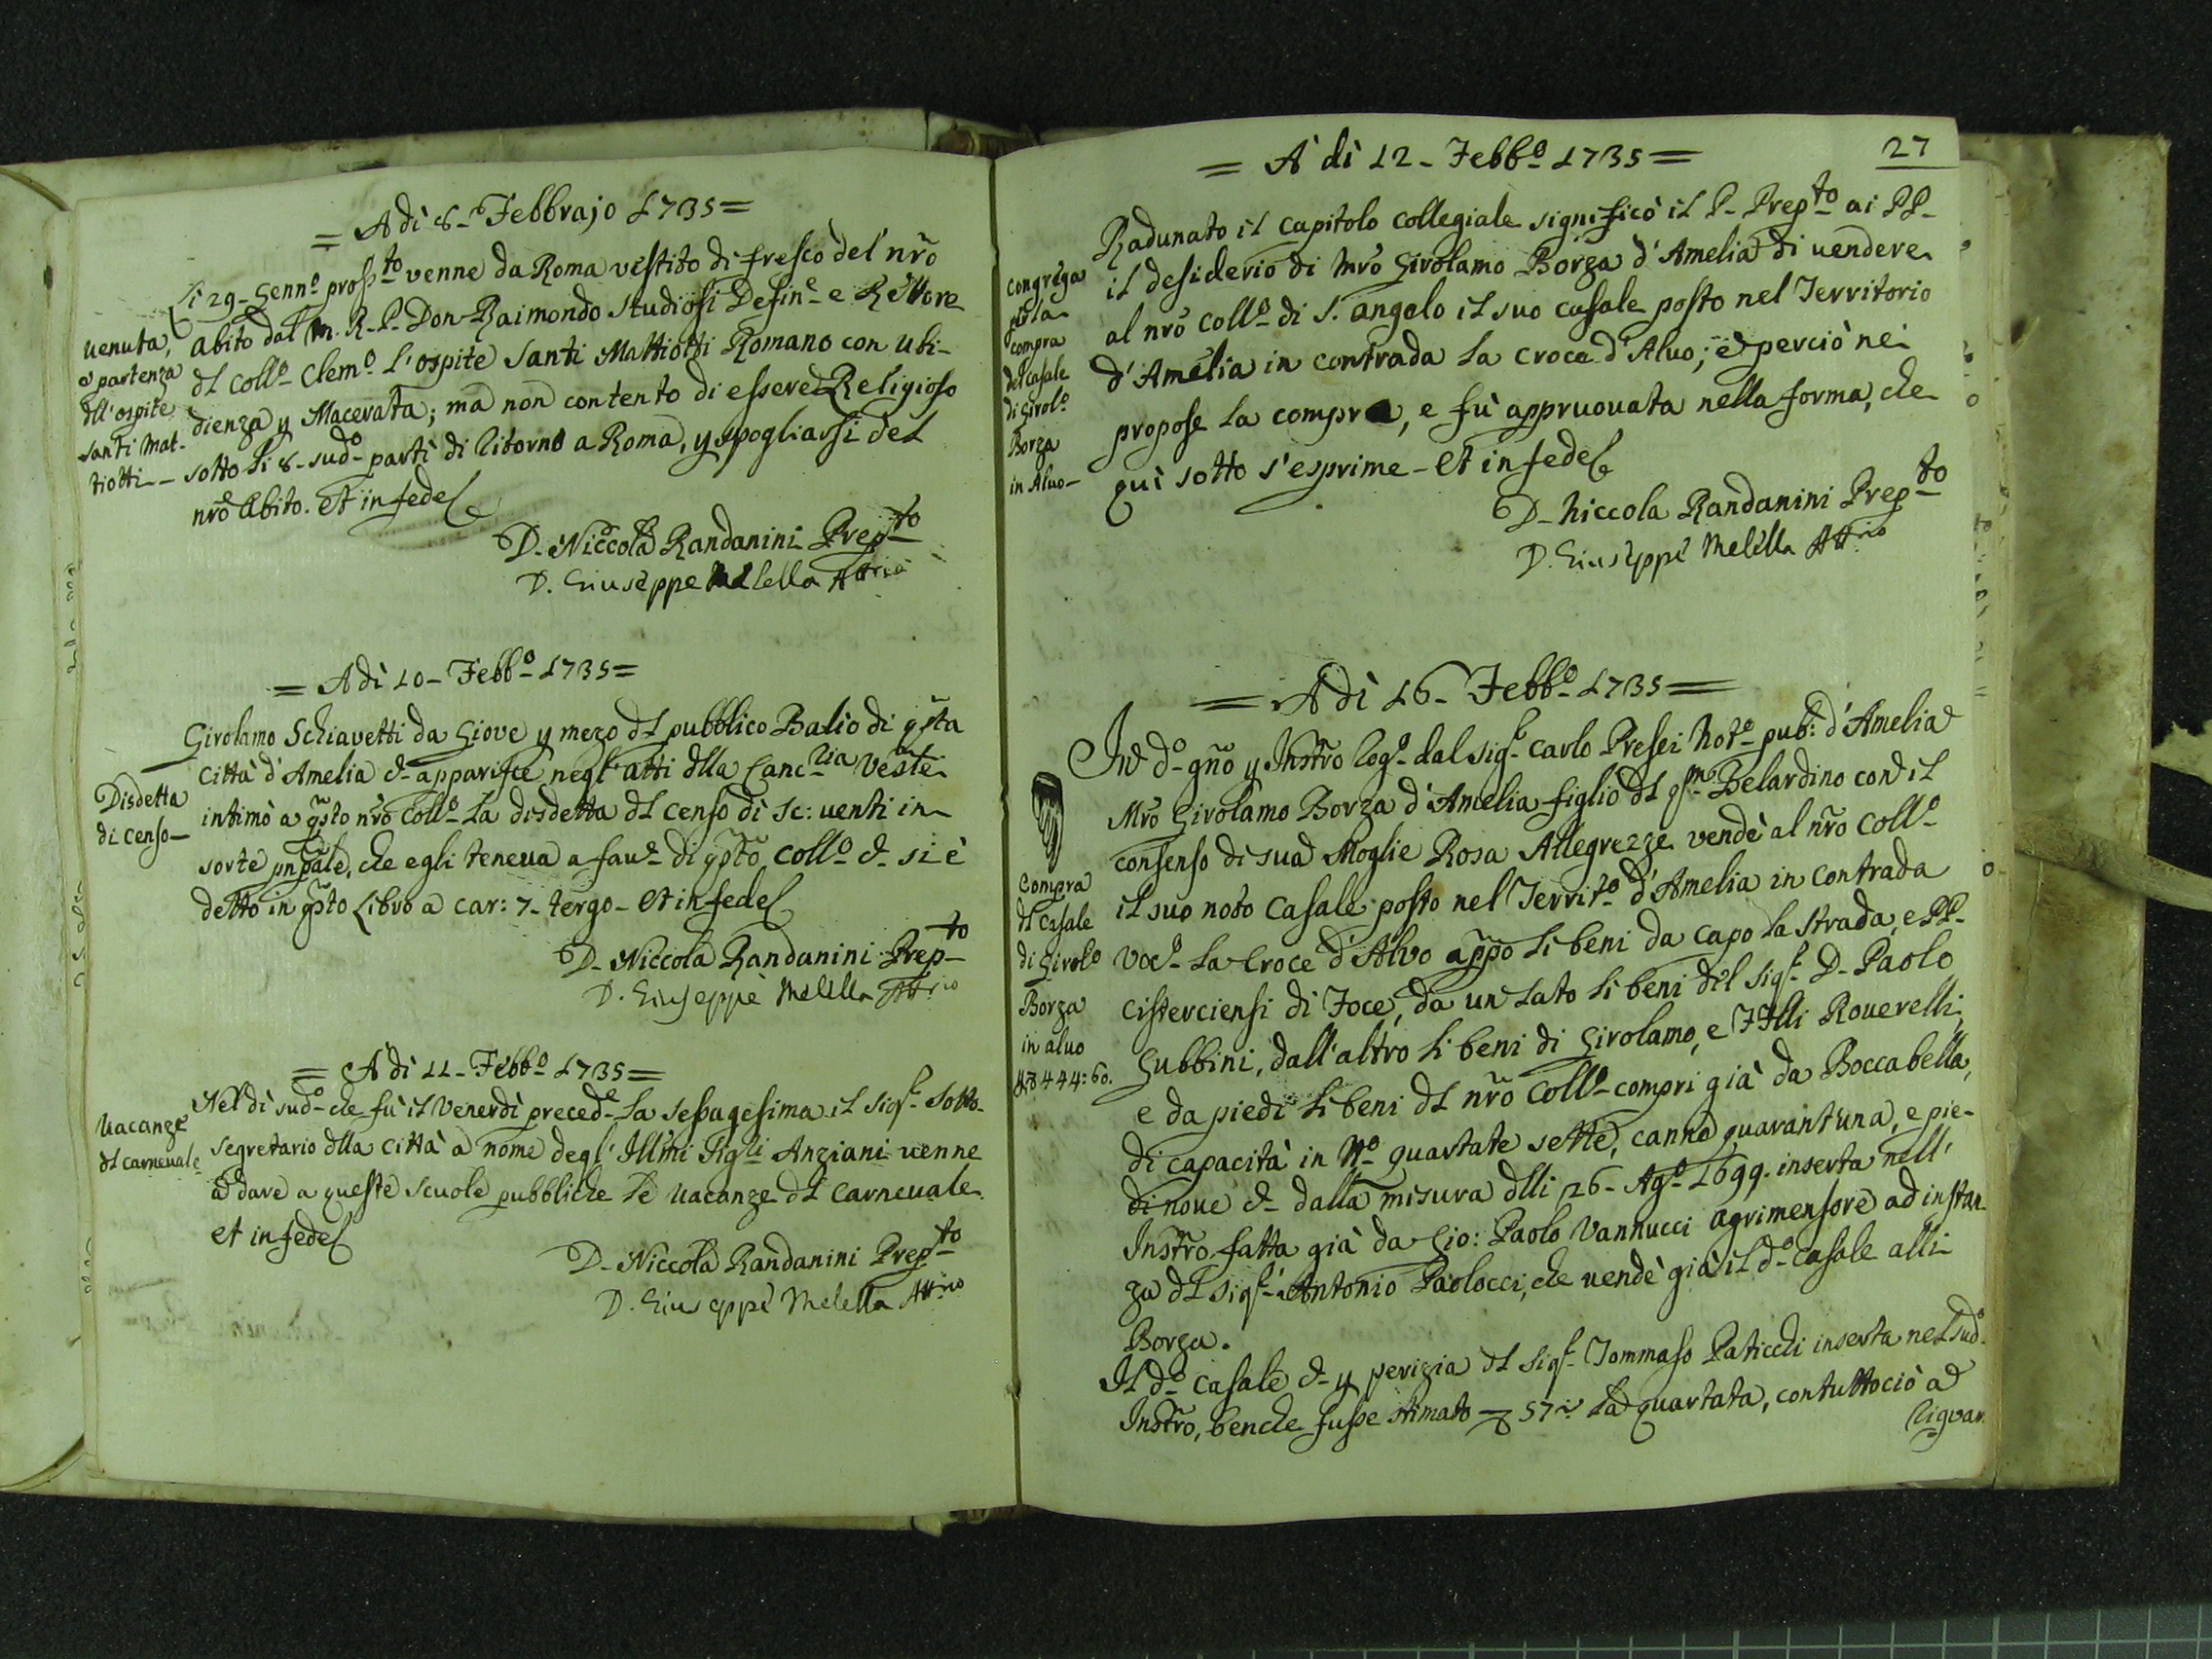 = Adì 8- Febbrajo 1735 =
venuta,
e partenza
dll'ospite
santi Mat-
tiotti -
Li 29- Genn.o pross.to venne da Roma vestito di fresco del nr̃o
abito dal M. R. P. Don Raimondo Studiosi Defin.e e Rettore
dl Coll.o Clem.o l'ospite Santi Mattiotti Romano con ubi-
dienza p Macerata; ma non contento di essere Religioso
sotto li 8- sud.o partì di ritorno a Roma, p spogliarsi del
nr̃o abito. Et in fede
D. Niccola Randanini Prep.to
D. Giuseppe Melella Att.rio
= Adì 10- Febb.o 1735 =
Disdetta
di Censo -
Girolamo Schiavetti da Giove p mezo dl pubblico Balio di qsta
Città d'Amelia e apparisce negl'atti dlla Canc.ria Veste
intimò a qsto nr̃o Coll.o la disdetta dl censo di sc: venti in
sorte pñpale, che egli teneva a fav.e di qsto Coll.o e si è
detto in qsto Libro a car: 7- tergo - Et in fede
D. Niccola Randanini Prep.to
D. Giuseppe Melella Att.rio
= Adì 11- Febb.o 1735 =
Vacanze
dl carnevale
Nel dì sud.o che fù il Venerdì preced.e la sessagesima il Sig.r Sotto-
segretario dlla Città a nome degl'Illmi Sig.li Anziani venne
a dare a queste scuole pubbliche le vacanze dl Carnevale.
et in fede
D. Niccola Randanini Prep.to
D. Giuseppe Melella Att.rio
27
= A dì 12- Febb.o 1735 =
Congrega
p la
compra
del casale
di Girol.o
Borza
in Alvo -
Radunato il Capitolo collegiale significò il P. Prep.to ai PP.
il desiderio di Mr̃o Girolamo Borza d'Amelia di vendere
al nr̃o Coll.o di S. Angelo il suo casale posto nel Territorio
d'Amelia in contrada la Croce d'Alvo; e perciò ne
propose la compra, e fù appruovata nella forma, che
quì sotto s'esprime - Et in fede
D. Niccola Randanini Prep.to
D. Giuseppe Melella Att.rio
= A dì 16- Febb.o 1735 =
Compra
dl Casale
di Girol.o
Borza
in alvo
444:60.
In d.o gño p Instr̃o rog.o dal Sig.r Carlo Presei Not.o pub: d'Amelia
Mr̃o Girolamo Borza d'Amelia figlio dl qm Belardino con il
consenso di sua Moglie Rosa Allegrezze vendè al nr̃o Coll.o
il suo noto Casale posto nel Territ.o d'Amelia in contrada
voc.a la Croce d'Alvo app̃o li beni da capo la strada, e PP.
Cisterciensi di Foce, da un lato li beni del Sig.r D. Paolo
Gubbini, dall'altro li beni di Girolamo, e Fr̃lli Roverelli,
e da piedi li beni dl nr̃o Coll.o compri già da Boccabella,
di capacità in N.o quartate sette, canne quarant'una, e pie-
di nove e dalla misura dlli 26- Ag.o 1699. inserta nell'
Instr̃o fatta già da Gio: Paolo Vannucci Agrimensore ad instan-
za dl Sig.r Antonio Paolocci, che vendè già il d.o casale alli
Borza.
Il d.o Casale e p perizia dl Sig.r Tommaso Paticchi inserta nel sud.o
Instr̃o, benche fusse stimato 57 la quartata, contuttociò a
riguar